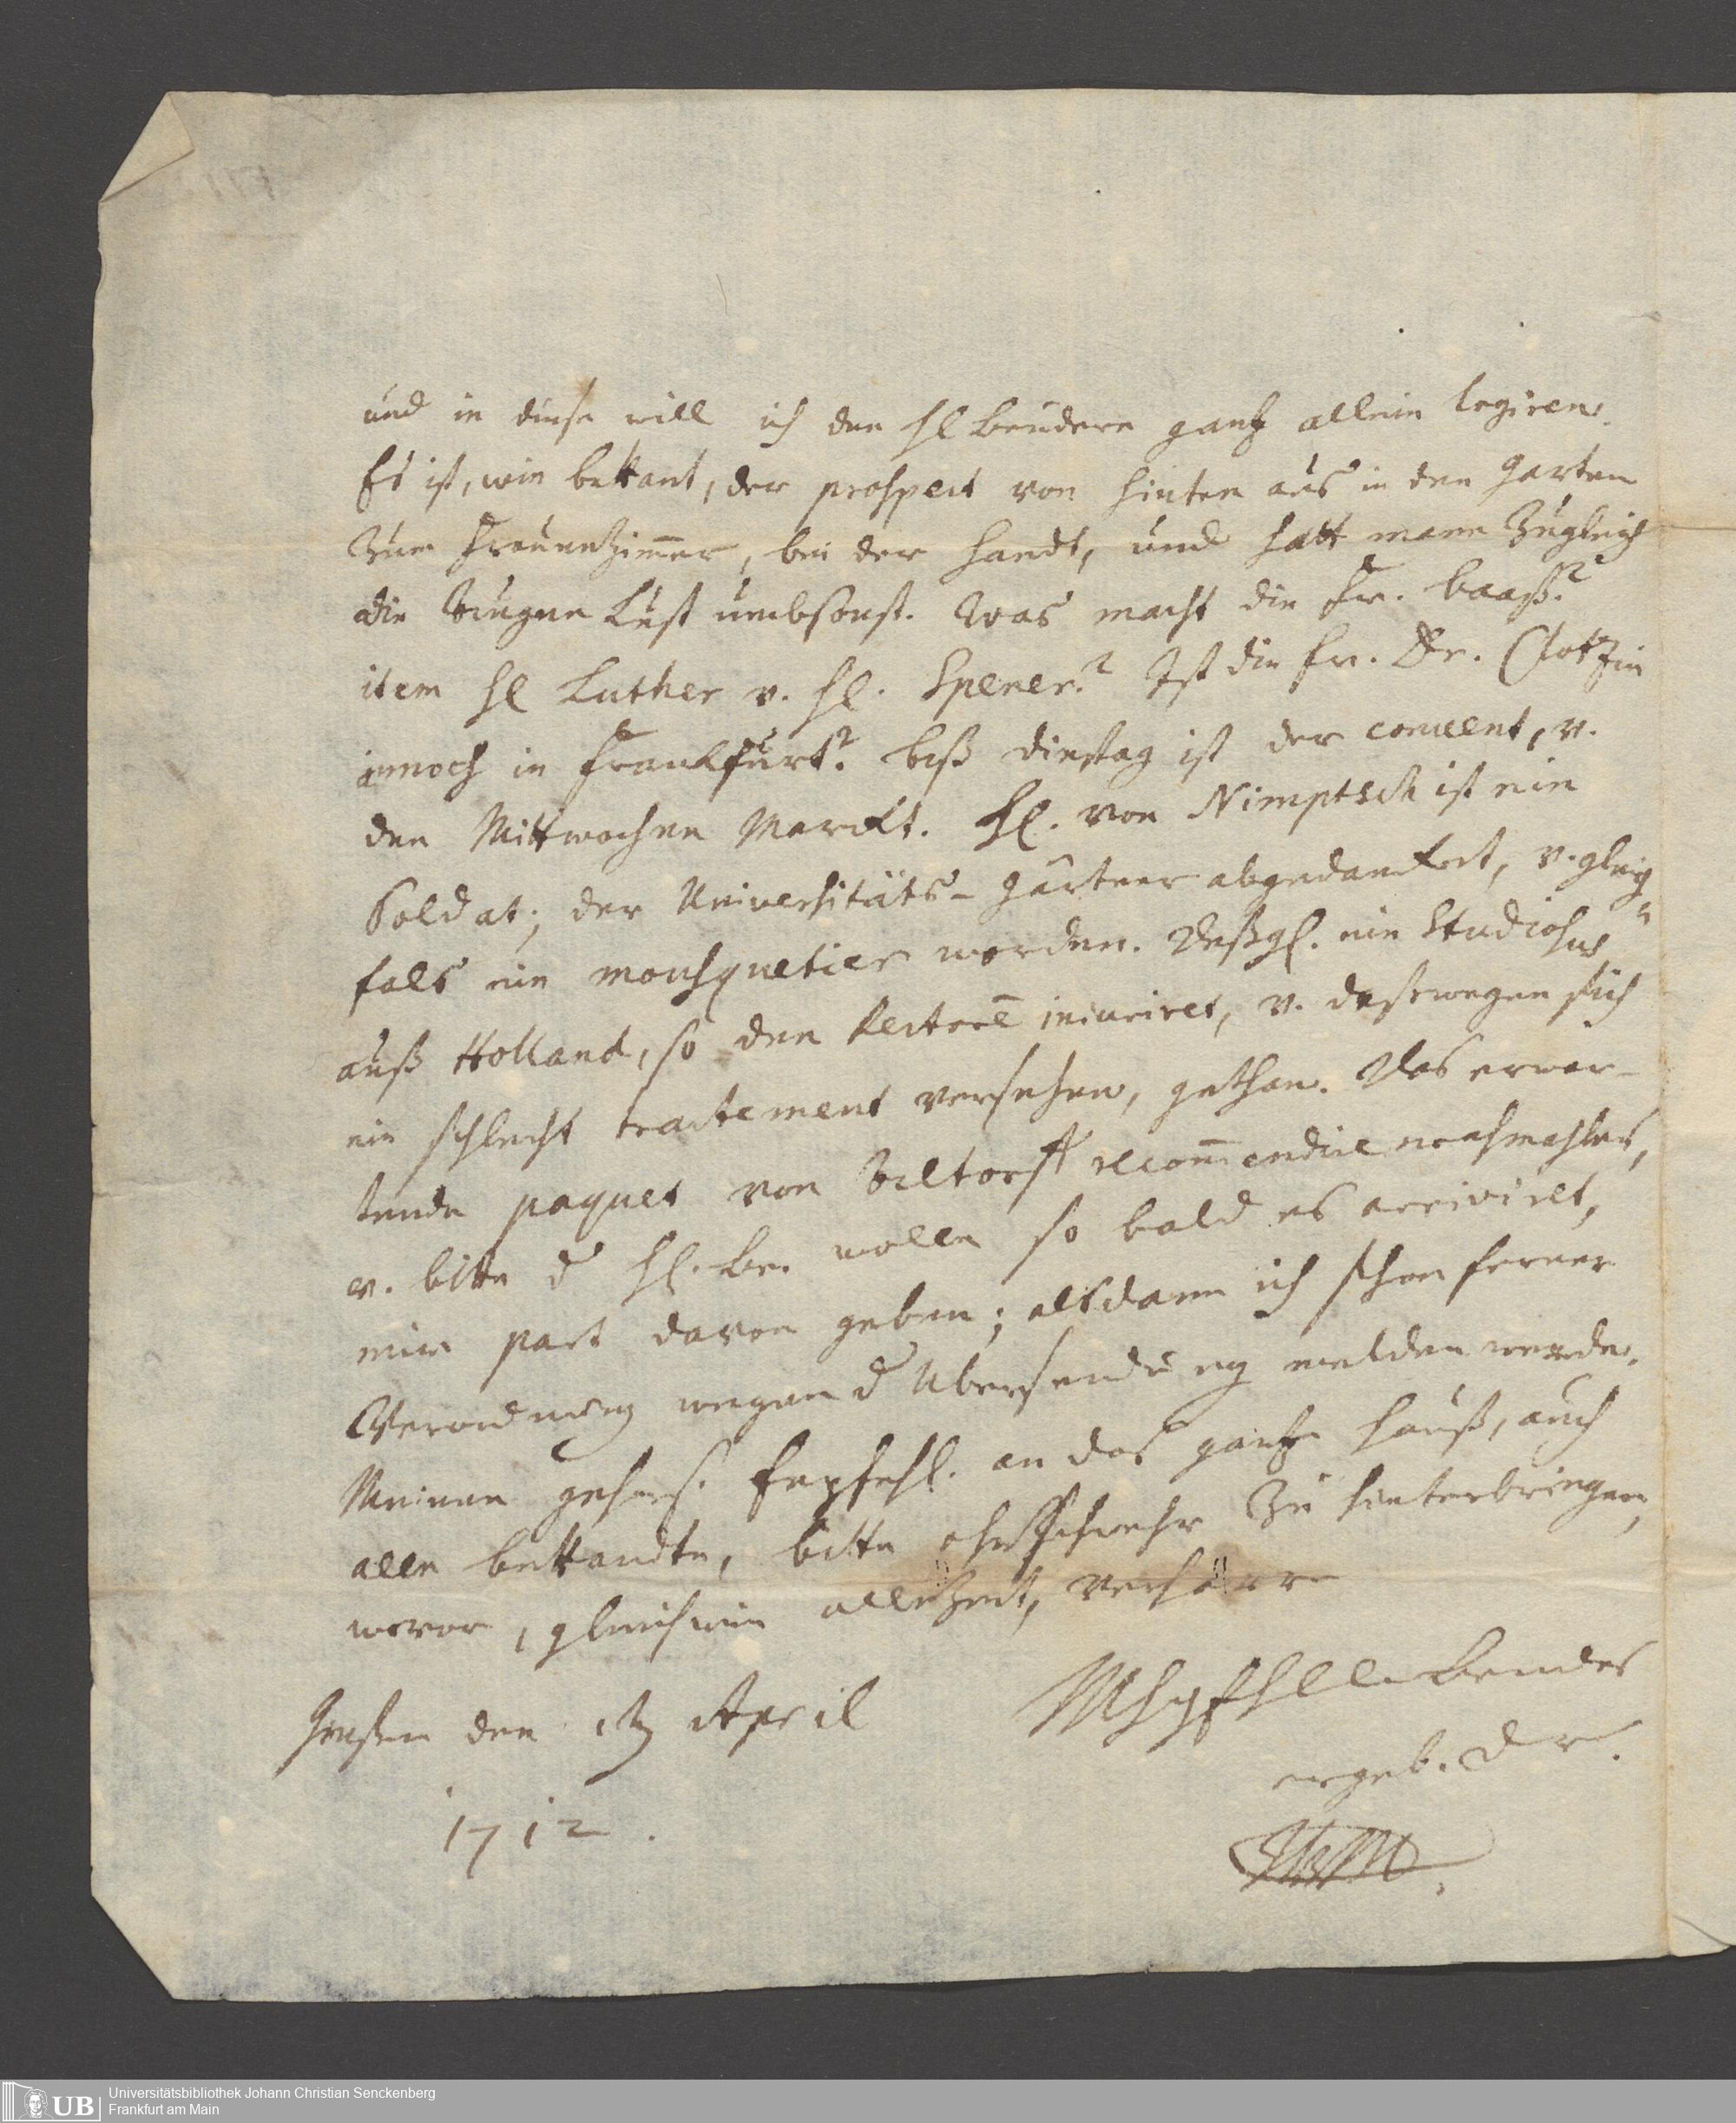 und in diese will ich den Hl Brudern gantz allein logiren.
Es ist, wie bekant, der prospect von hinten aus in den Garten
zum Frauenzimmer, bei der Handt, und hatt mann zugleich
die Augen Lust umbsonst. Was macht die Fr. baaß?
item Hl Luther v. Hl. Spener? Ist die Fr. Dr. Clotzin
annoch in Franckfurt? biß Dinstag ist der convent, v.
den Mittwochen Marckt. Hl. von Nimptsch ist ein
Soldat; der Universitäts-Gärtner abgedanckt, v. gleich
fals ein mousquetier worden. Deßgl. ein Studiosus
auß Holland, so den Rectorē iniuriret, v. deßwegen sich
ein schlecht tractement versehen, gethan. Das erwar-
tende paquet von Altorff recom̄endire nochmahls,
v. bitte d Hl. Br. wolle so bald es arriviret,
mir part davon geben; alsdann ich schon ferner
Verordnung wegen d Ubersendung melden werde.
Meinen gehors. Empfehl. an das gantze Hauß, auch
alle bekandte, bitte ohnschwehr zu hinterbringen,
wovor, gleichwie allezeit, verharre
Giessen den April
1712.
Bruders
ergeb. Dr.
Universitätsbibliothek Johann Christian Senckenberg
Frankfurt am Main
UB